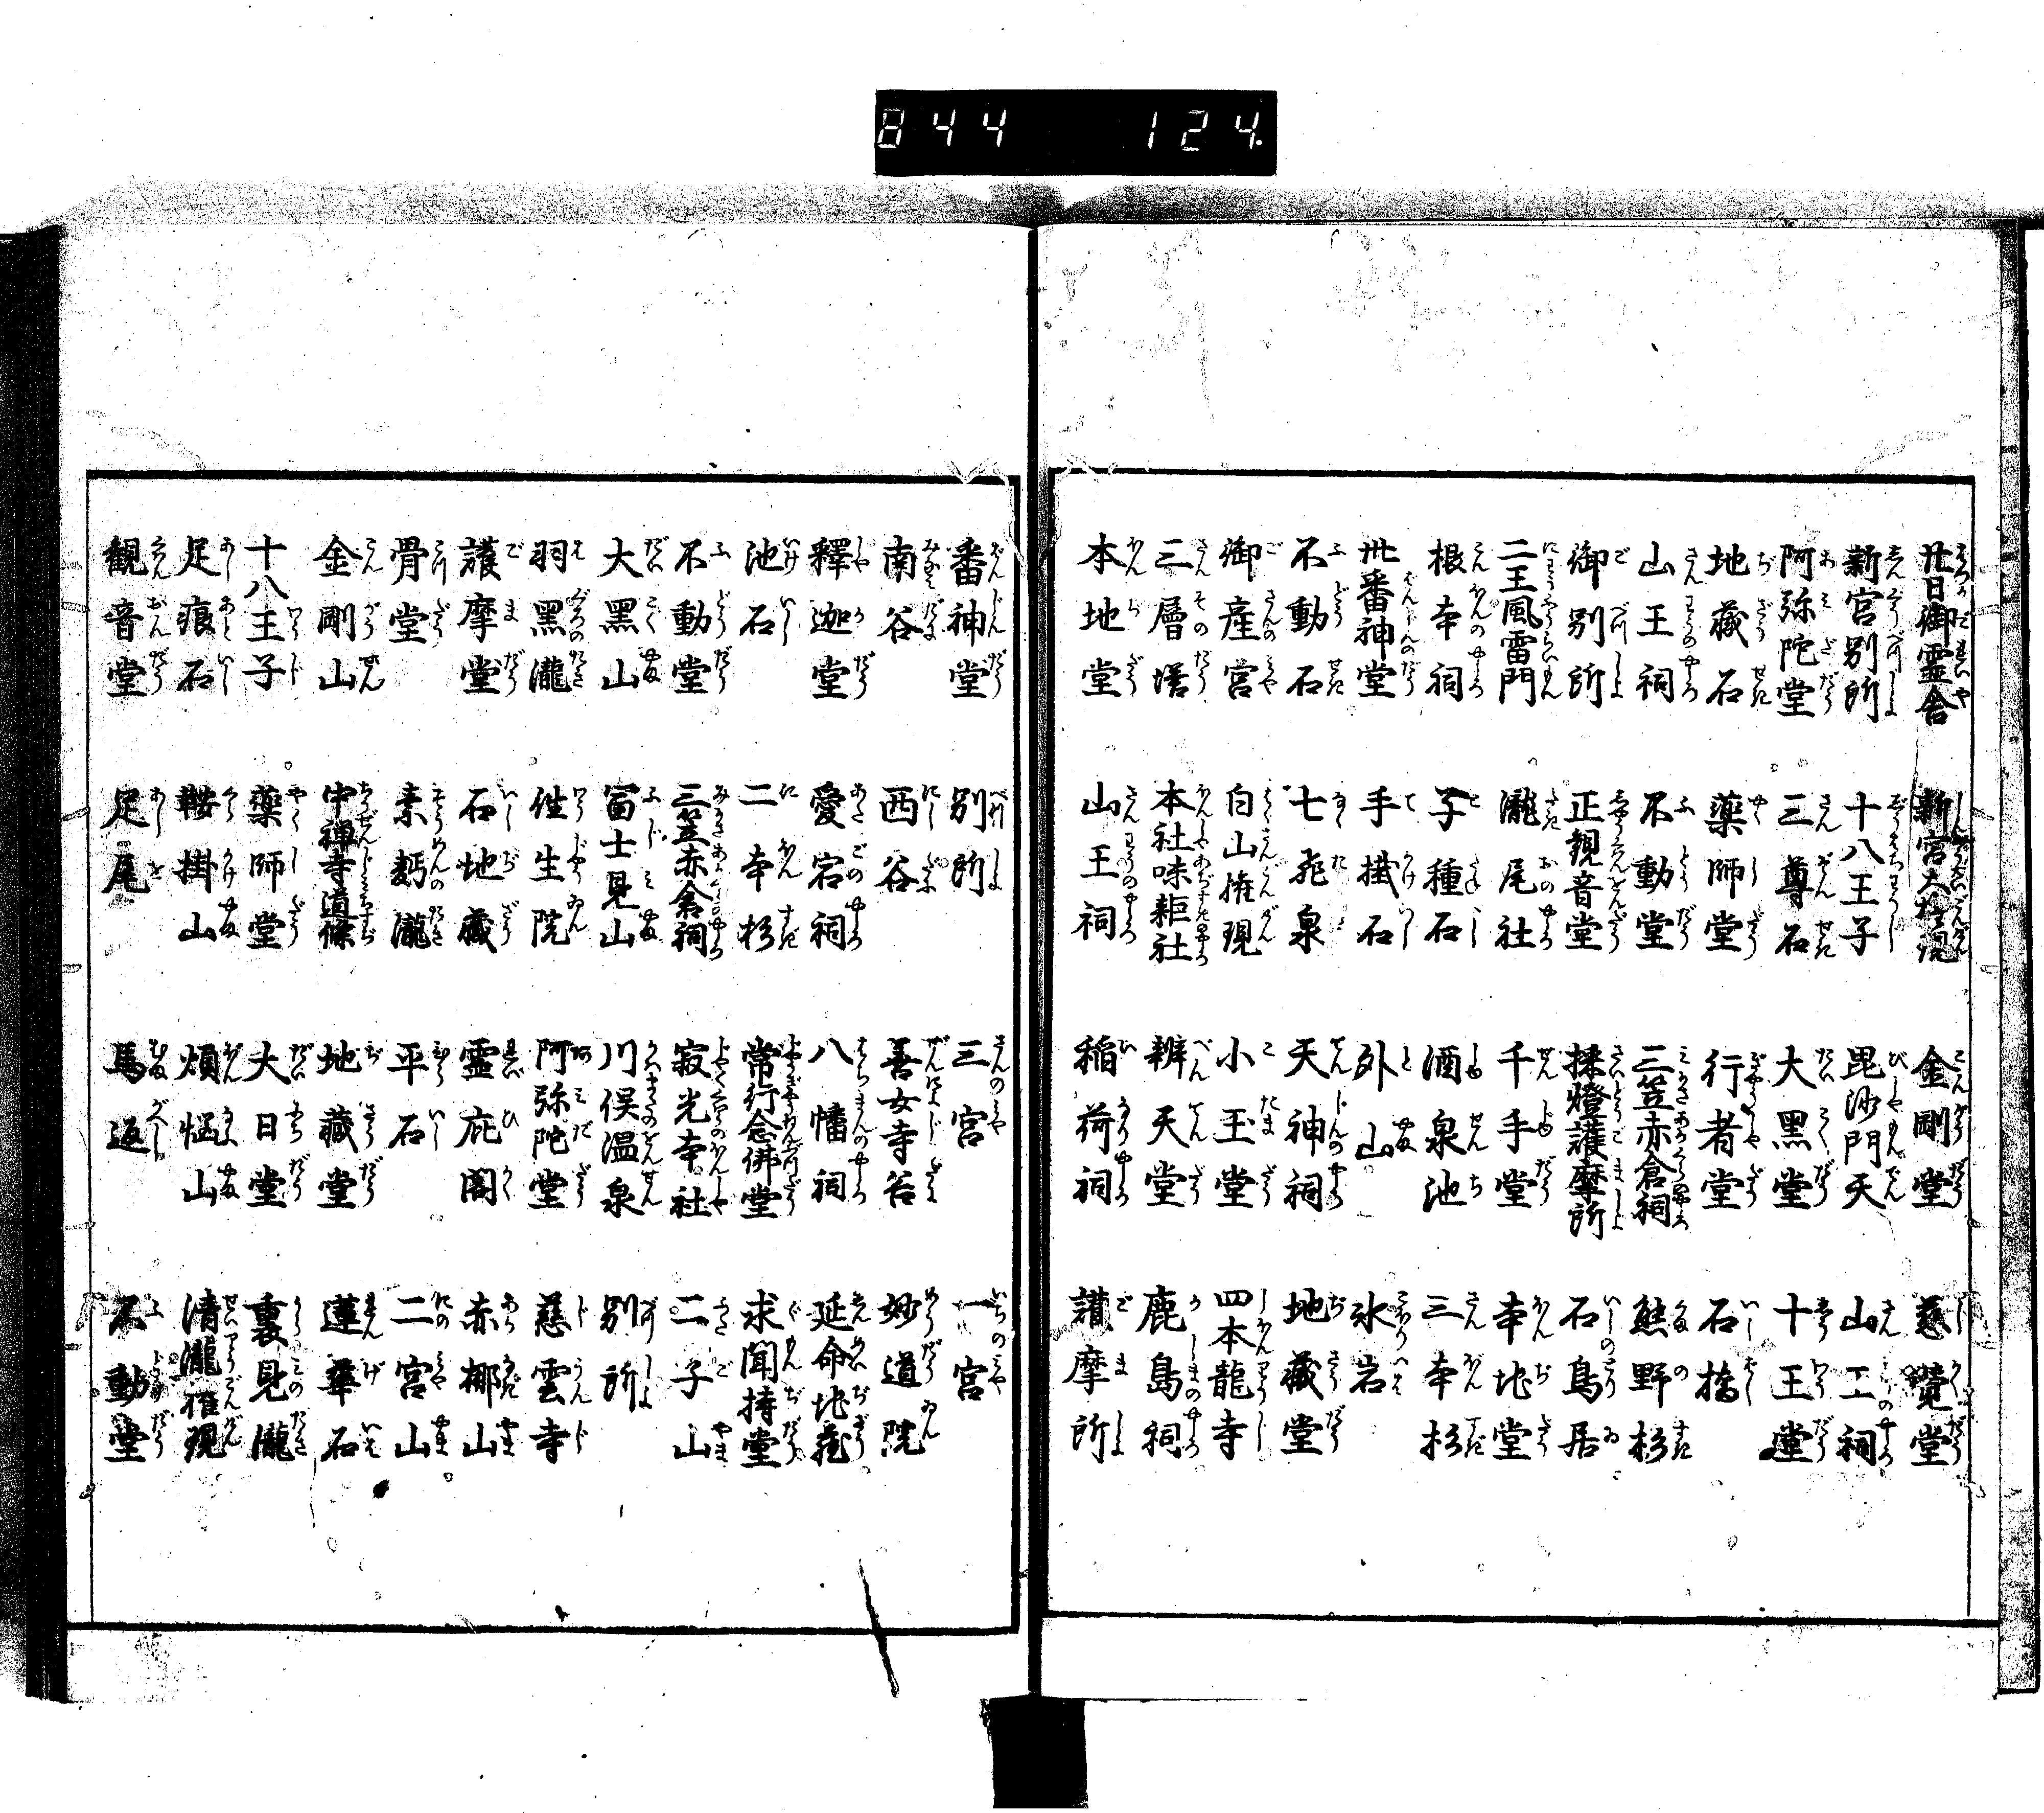 844 124.
廿日御霊舎 新宮大権現 金剛堂 慈覺堂
新宮別所 十八王子 毘沙門天 山工祠
阿弥陀堂 三尊石 大黒堂 十王堂
地蔵石 薬師堂 行者堂 石橋
山王祠 不動堂 三笠赤倉祠 熊野杉
御別所 正観音堂 採燈護摩所 石鳥居
二王風雷門 瀧尾社 千手堂 本地堂
根本祠 子種石 酒泉池 三本杉
卅番神堂 手掛石 外山 氷岩
不動石 七飛泉 天神祠 地蔵堂
御産宮 白山権現 小玉堂 四本龍寺
三層塔 本社味耜社 辨天堂 鹿島祠
本地堂 山王祠 稲荷祠 護摩所
番神堂 別所 三宮 一宮
南谷 西谷 善女寺谷 妙道院
釋迦堂 愛宕祠 八幡祠 延命地蔵
池石 二本杉 常行念佛堂 求聞持堂
不動堂 三笠赤倉祠 寂光本社 二子山
大黒山 富士見山 川俣温泉 別所
羽黒瀧 往生院 阿弥陀堂 慈雲寺
護摩堂 石地蔵 霊庇閣 赤椰山
骨堂 素麪瀧 平石 二宮山
金剛山 中禅寺道條 地蔵堂 蓮華石
十八王子 薬師堂 大日堂 裏見瀧
足痕石 鞍掛山 煩悩山 清瀧権現
観音堂 足尾 馬返 不動堂